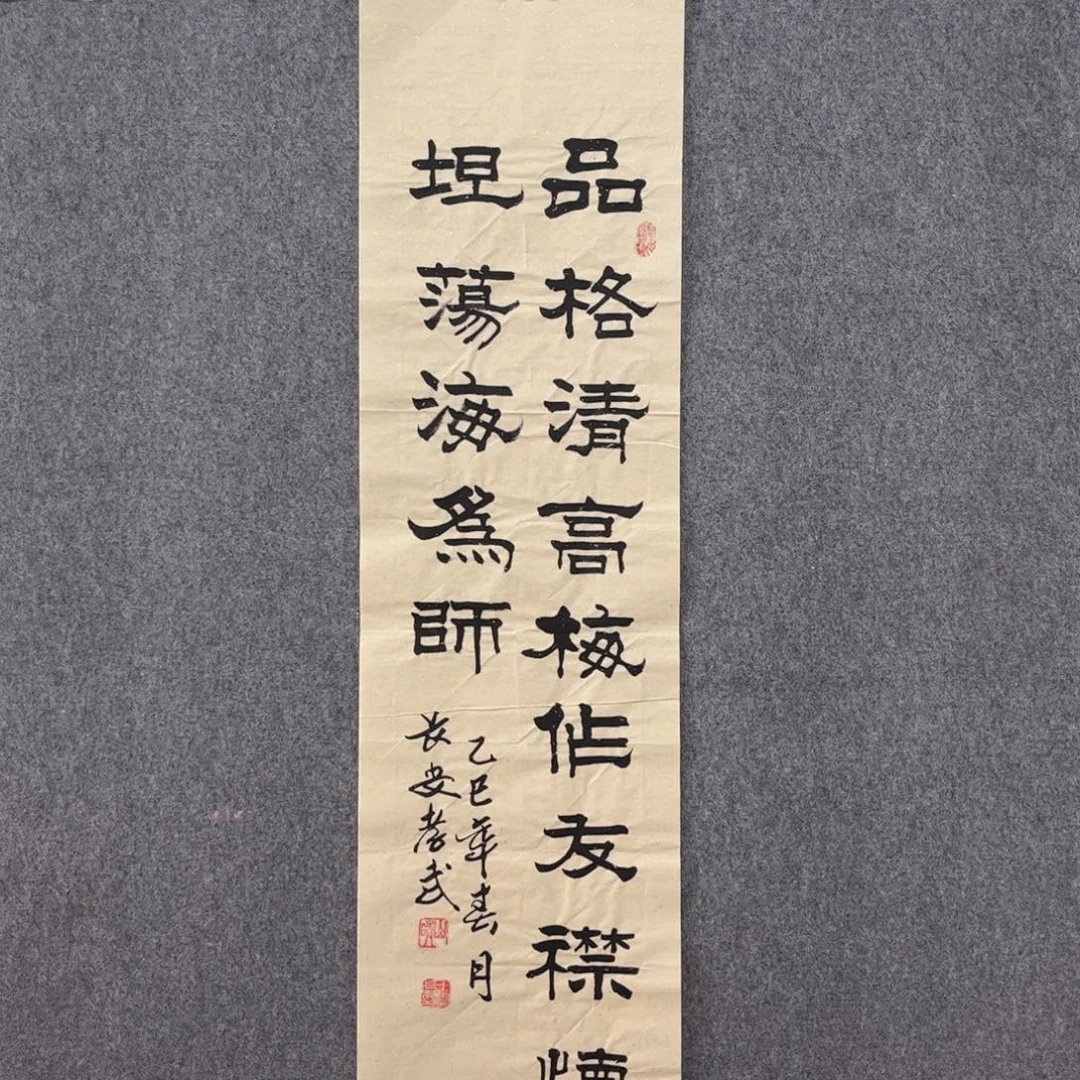 品格清高梅佔友襟懷
坦蕩海為師
乙巳年春月
长安孝武